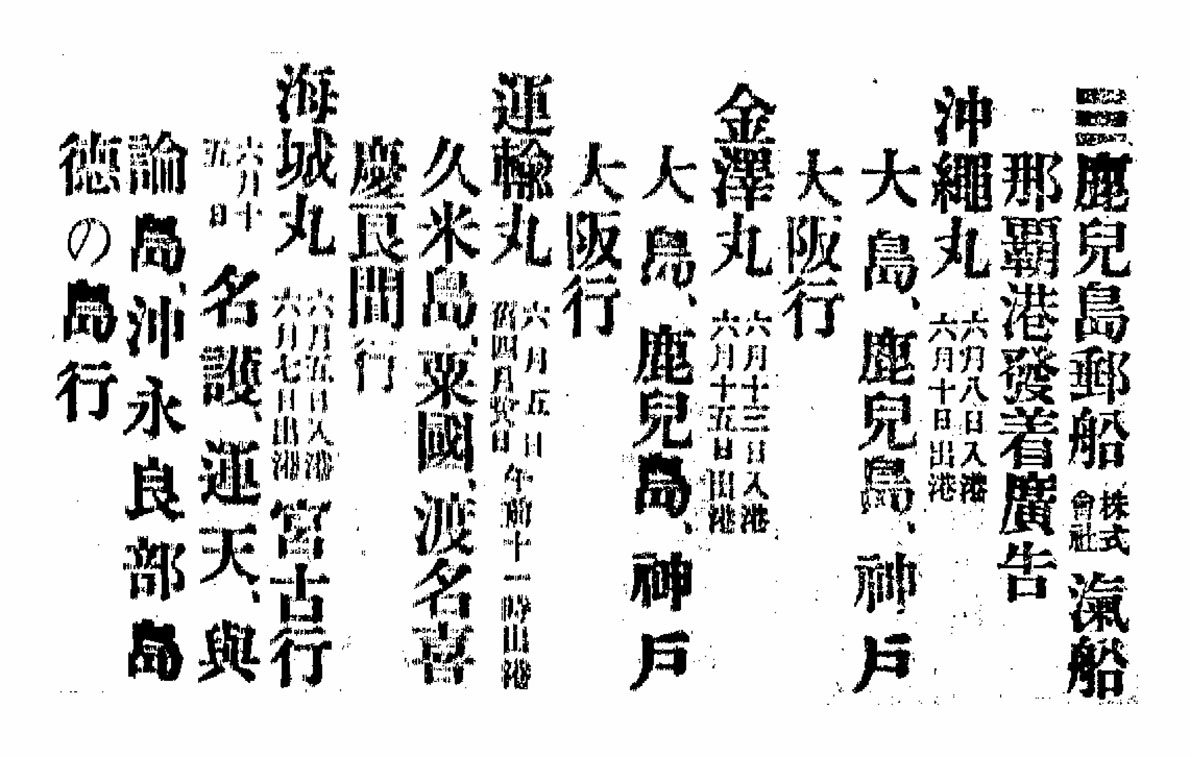 ☰鹿兒島郵船株式會社滊船
那覇港發着廣告
沖繩丸 六月八日入港 六月十日出港
大島、鹿兒島、神戶
大阪行
金澤丸 六月十三日入港 六月十五日出港
大島、鹿兒島、神戶
大阪行
運輸丸 六月五日 四月 日 午前十一時出港
久米島、粟國、渡名喜
慶良間行
海城丸 六月五日入港 六月七日出港 宮古行
六月十五日 名護、運天、與
論島、沖永良部島
德の島行